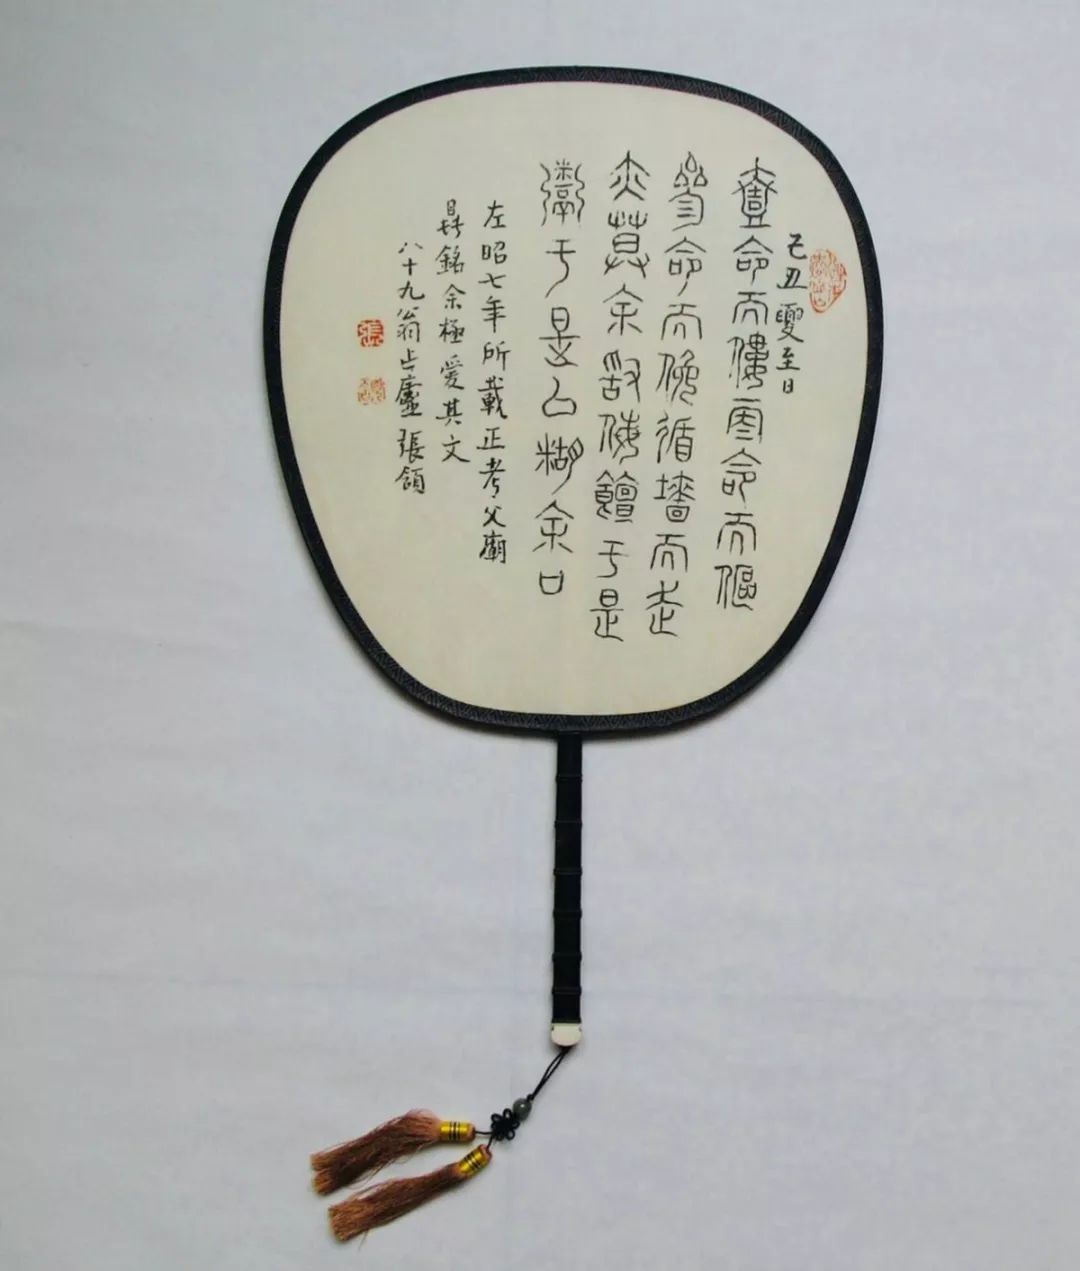 己丑夏至日
壹命而僂再命而傴
參命而俛循墻而走
亦莫余敢侮饘于是
鬻于是以糊余口
左昭七年所載正考父廟
鼎銘余極愛其文
八十九翁乍廬張頷
張